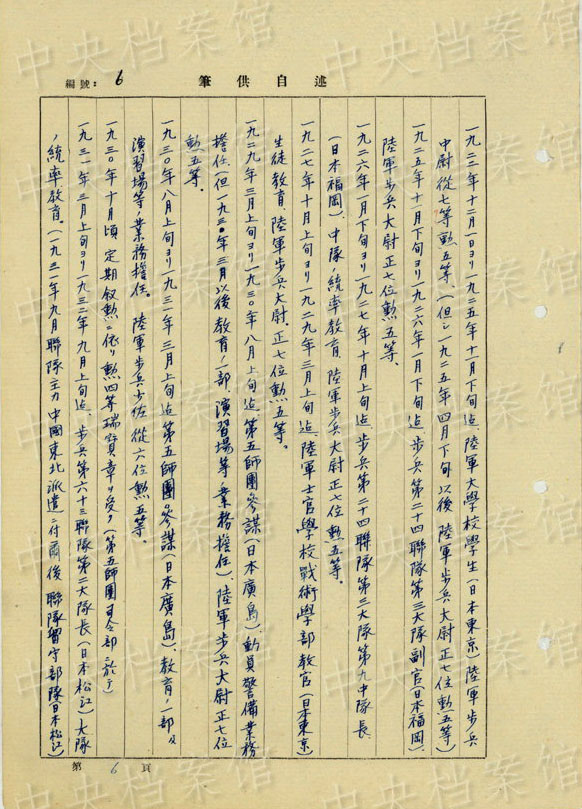 編號: 6
筆供自述
一九二二年十二月一日ヨリ一九二五年十一月下旬迄、陸軍大學校學生(日本東京)陸軍步兵
中尉從七等勲五等、(但シ一九二五年四月下旬以後 陸軍步兵大尉正七位勲五等)
一九二五年十一月下旬ヨリ一九二六年一月下旬迄、步兵第二十四聯隊第三大隊副官(日本福岡)、
陸軍步兵大尉正七位勲五等。
一九二六年一月下旬ヨリ一九二七年十月上旬迄、步兵第二十四聯隊第三大隊第九中隊長
(日本福岡)、中隊ノ統率教育、陸軍步兵大尉正七位勲五等。
一九二七年十月上旬ヨリ一九二九年三月上旬迄、陸軍士官學校戰術學部教官(日本東京)
生徒教育、陸軍步兵大尉、正七位勲五等。
一九二九年三月上旬ヨリ一九三〇年八月上旬迄、第五師團參謀(日本廣島)、動員警備業務
擔任(但一九三〇年三月以後教育ノ一部、演習場等ノ業務擔任)、陸軍步兵大尉正七位
勲五等。
一九三〇年八月上旬ヨリ一九三一年三月上旬迄第五師團參謀(日本廣島)、教育ノ一部及
演習場等ノ業務擔任。陸軍步兵少佐從六位勲五等。
一九三〇年十月頃 定期敘勲ニ依リ勲四等瑞寶章ヲ受ク(第五師團司令部ニ於テ)
一九三一年三月上旬ヨリ一九三二年九月上旬迄、步兵第六十三聯隊第二大隊長(日本松江)大隊
ノ統率教育。(一九三一年九月聯隊主力中國東北派遣ニ付爾後聯隊留守部隊(日本松江)
第 6 頁
中央档案馆